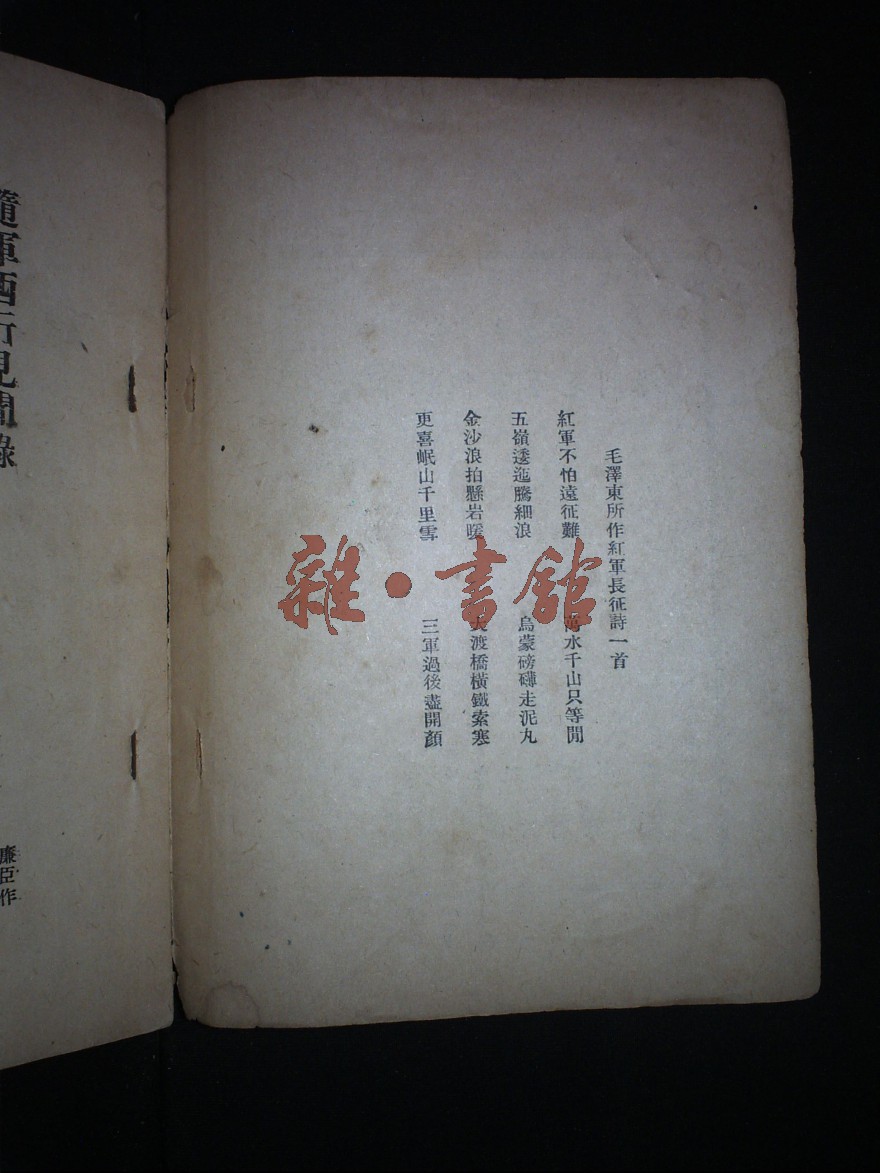 毛澤東所作紅軍長征詩一首
紅軍不怕遠征難　萬水千山只等閒
五嶺逶迤騰細浪　烏蒙磅礴走泥丸
金沙浪拍懸岩暖　大渡橋橫鐵索寒
更喜岷山千里雪　三軍過後盡開顏
隨軍西行見聞錄
廉臣作
雜·書館